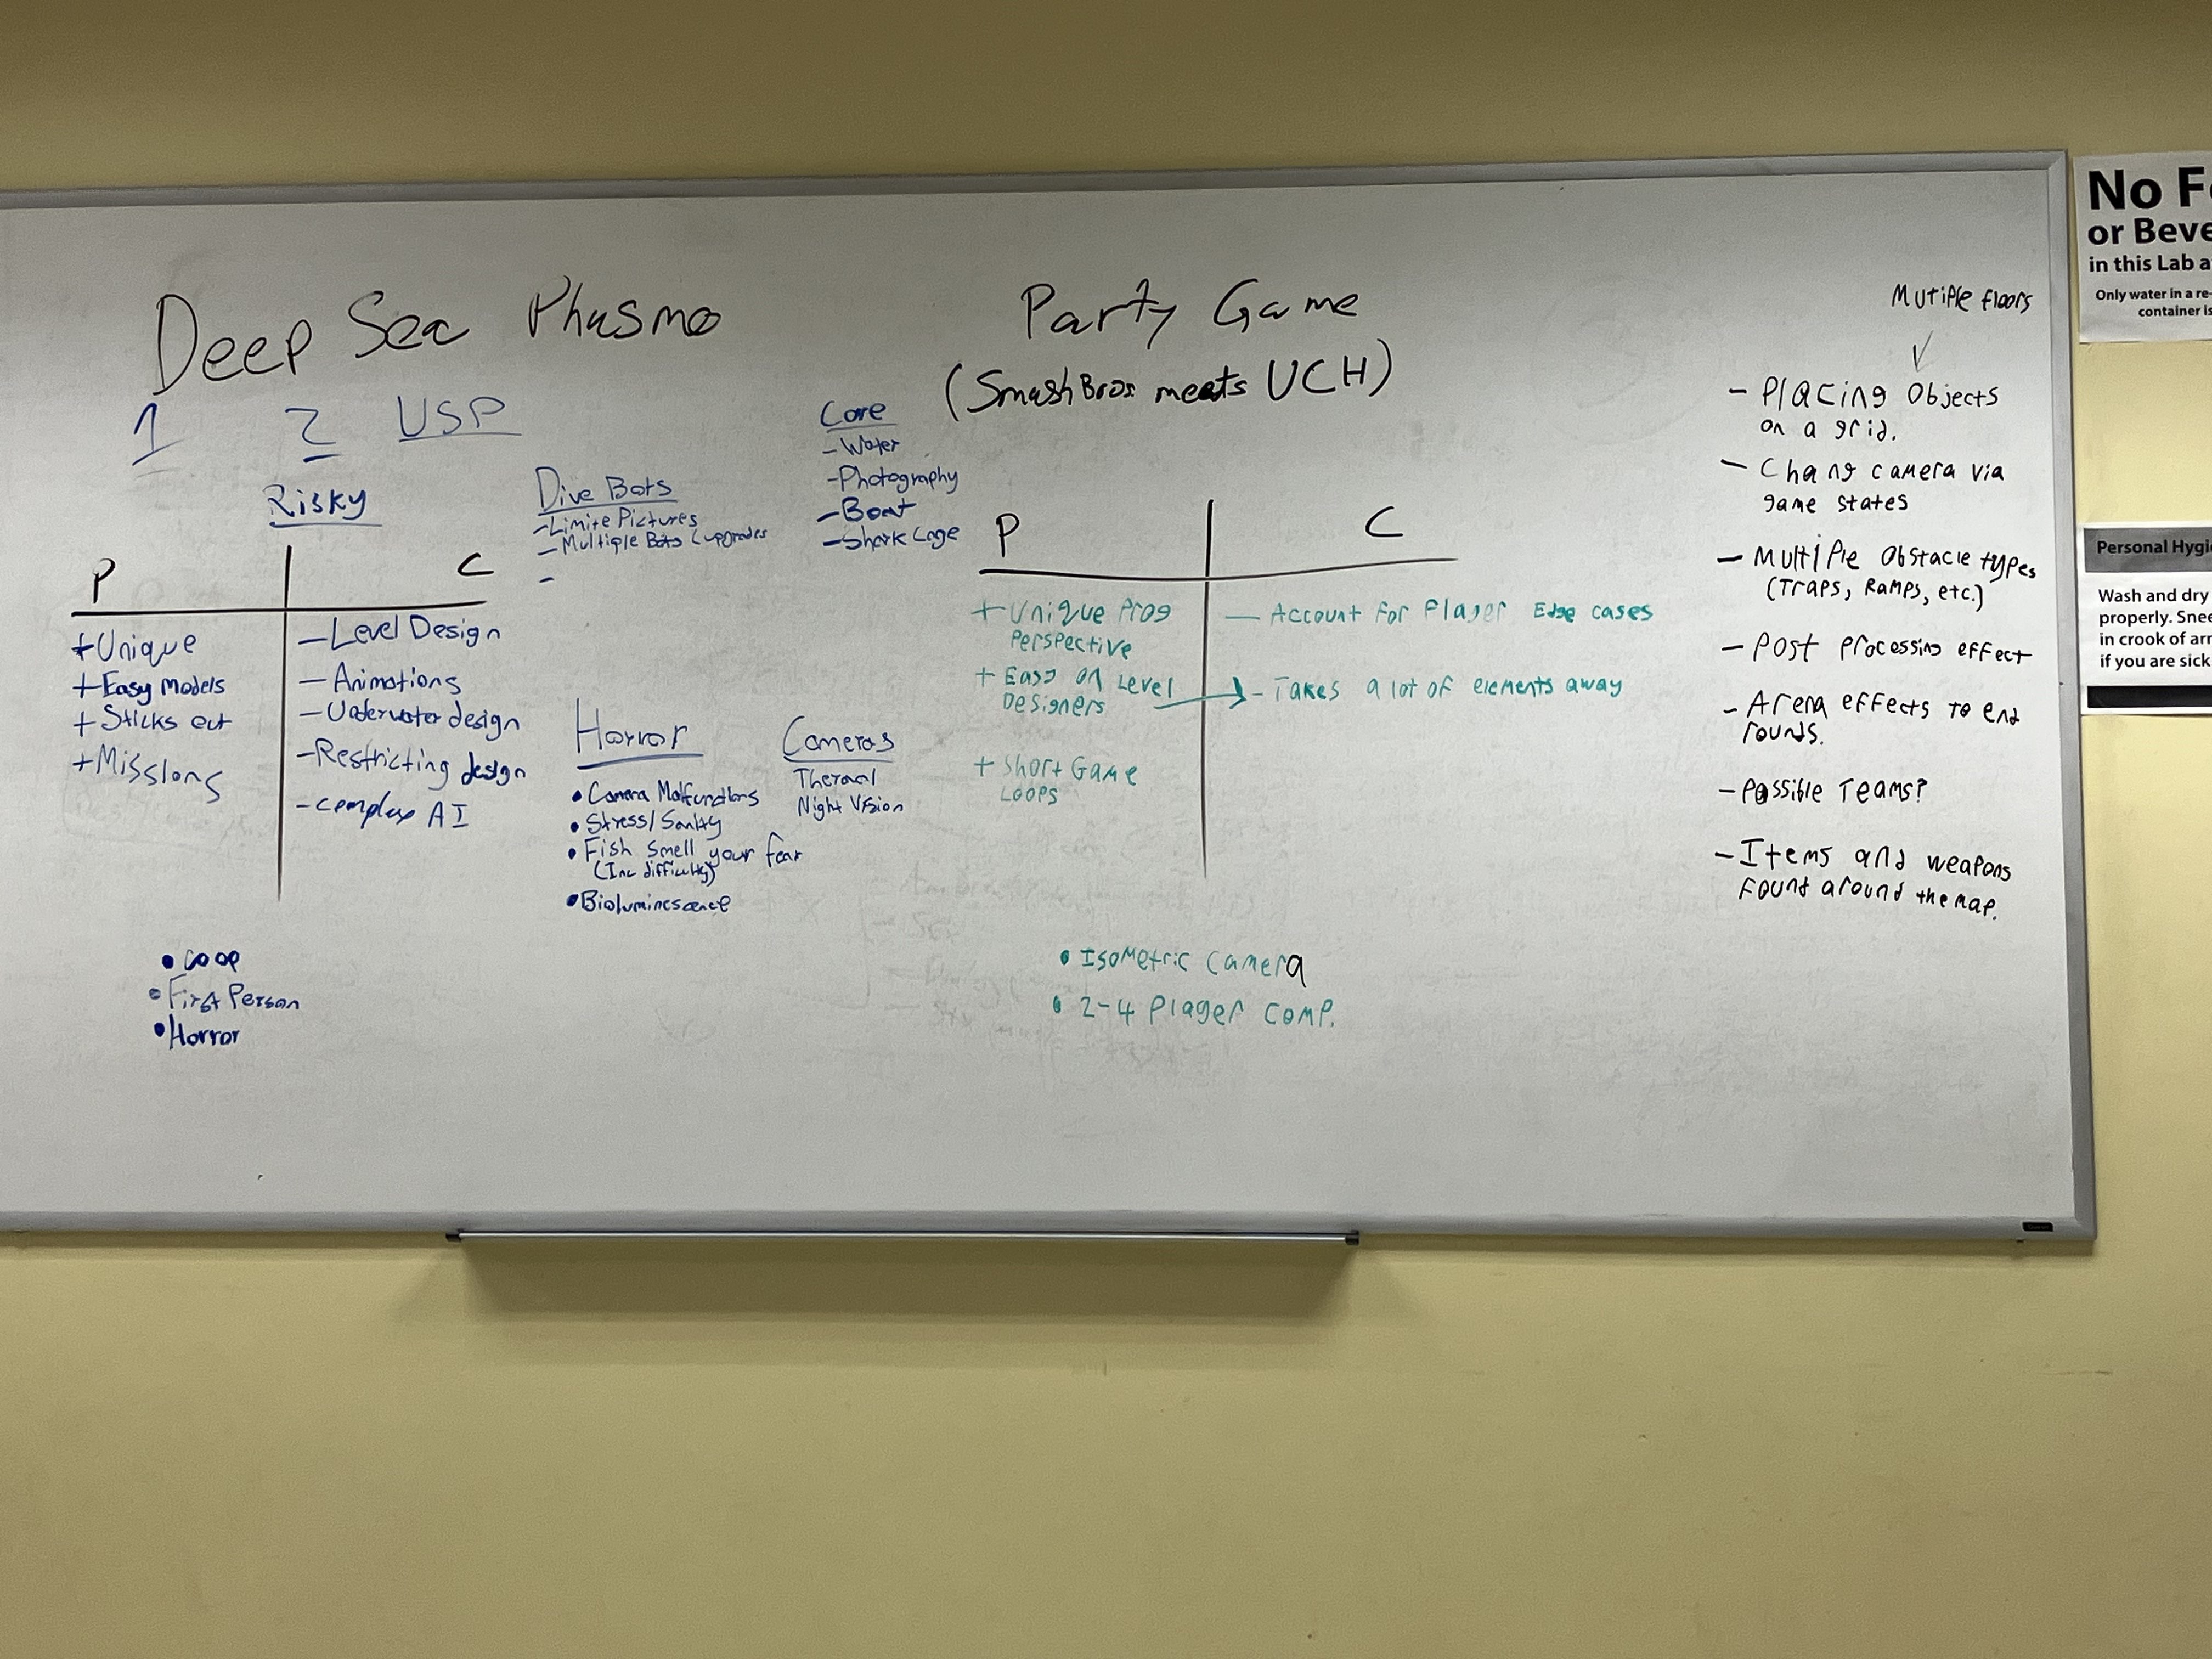 Deep Sea Phasmo
1 2 USP
Risky
P C
+Unique
+Easy models
+Sticks out
+Missions
-Level Design
-Animations
-Underwater design
-Restricting design
-complex AI
• coop
• First Person
• Horror
Dive Bots
-Limite Pictures
-Multiple Bots (upgrades
-
Core
-Water
-Photography
-Boat
-Shark Cage
Horror
• Camera Malfunctions
• Stress/Sanity
• Fish smell your fear
(Inc difficulty)
• Bioluminescence
Cameras
Thermal
Night Vision
Party Game
(Smash Bros meets UCH)
P C
+ Unique Prog
Perspective
+ Easy on Level
Designers
+ Short Game
Loops
- Account For Player Edge cases
- Takes a lot of elements away
• Isometric camera
• 2-4 Player comp.
Mutiple floors
- Placing Objects
on a grid.
- Chang camera via
game states
- Multiple Obstacle types
(Traps, Ramps, etc.)
- Post processing effect
- Arena effects to end
rounds.
- Possible Teams?
- Items and weapons
found around the map.
No F
or Beve
in this Lab a
Only water in a re-
container is
Personal Hygi
Wash and dry
properly. Snee
in crook of arr
if you are sick